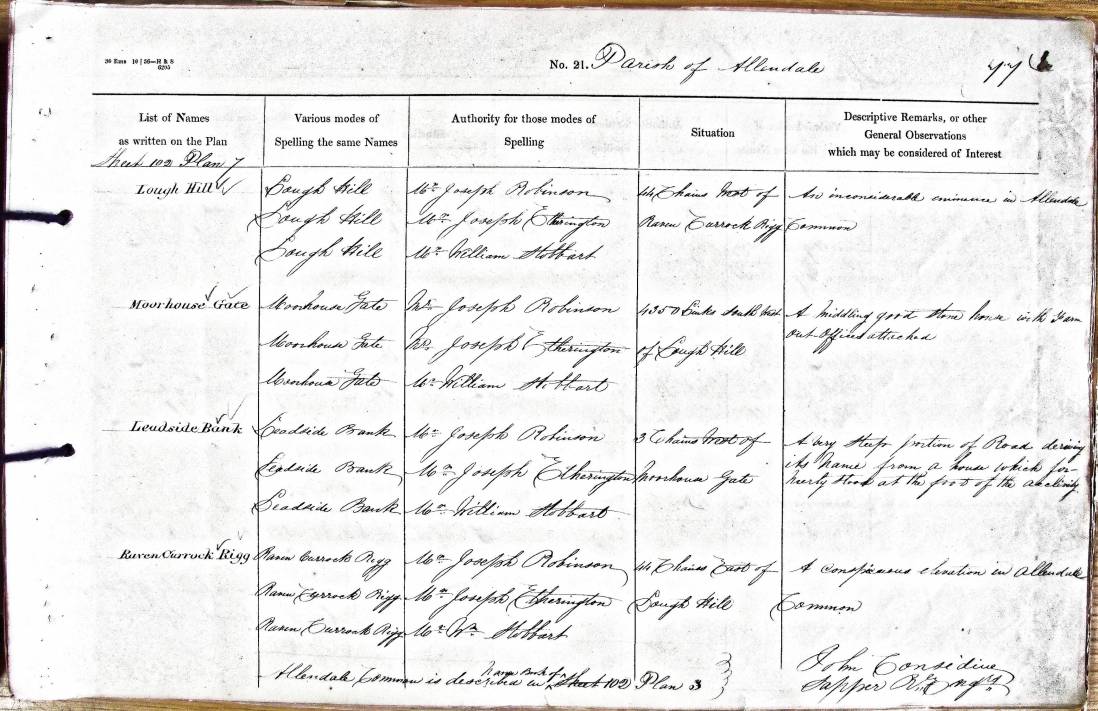 30 Ems 10 | 56—H & S
6205
No. 21. Parish of Allendale 77
List of Names
as written on the Plan
Various modes of
Spelling the same Names
Authority for those modes of
Spelling
Situation
Descriptive Remarks, or other
General Observations
which may be considered of Interest
Sheet 102 Plan 7
Lough Hill Lough Hill Mr. Joseph Robinson 44 Chains West of An inconsiderable eminence in Allendale
Lough Hill Mr. Joseph Etherington Raven Currock Rigg Common
Lough Hill Mr. William Stobbart
Moorhouse Gate Moorhouse Gate Mr. Joseph Robinson 4350 Links South West A middling good stone house with Farm
Moorhouse Gate Mr. Joseph Etherington of Lough Hill out Offices attached
Moorhouse Gate Mr. William Stobbart
Leadside Bank Leadside Bank Mr. Joseph Robinson 3 Chains West of A very steep portion of Road deriving
Leadside Bank Mr. Joseph Etherington Moorhouse Gate its Name from a house which for-
merly stood at the foot of the acclivity
Leadside Bank Mr. William Stobbart
Raven Currock Rigg Raven Currock Rigg Mr. Joseph Robinson 44 Chains East of A conspicuous elevation in Allendale
Raven Currock Rigg Mr. Joseph Etherington Lough Hill Common
Raven Currock Rigg Mr. Wm. Stobbart
Allendale Common is described in Name Book of Sheet 102 Plan 3
John Considine
Sapper R. Engrs